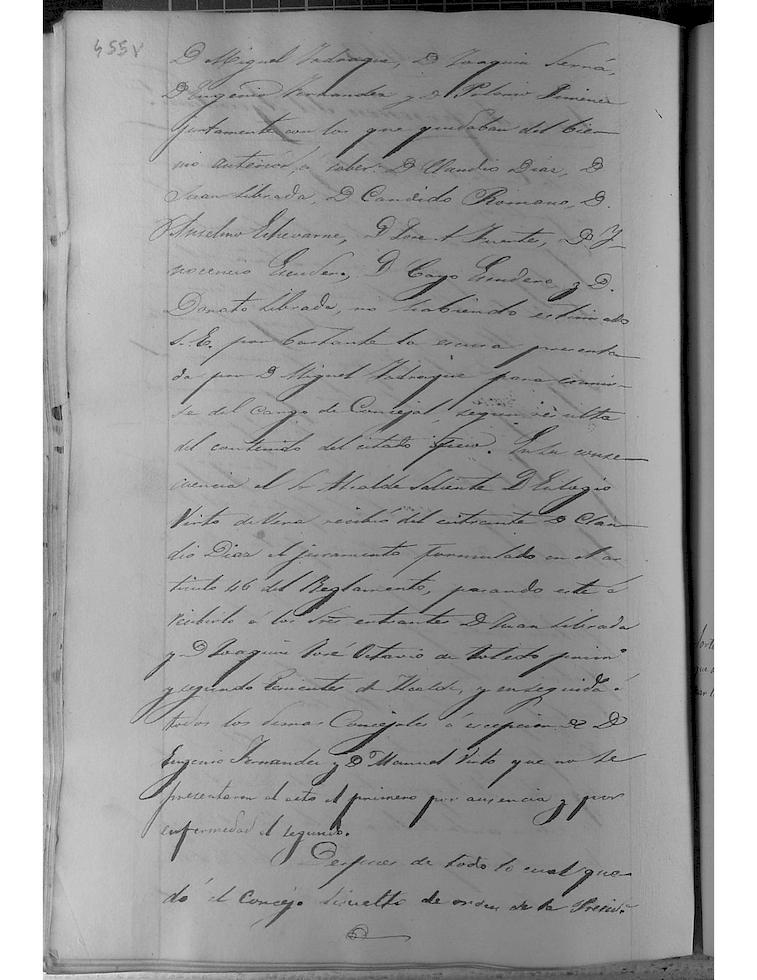 455v
D Miguel Jadraque, D Joaquin Serna,
D Eugenio Fernandez y D Polonio Gimenez
juntamente con los que quedaban del bie-
nio anterior, a saber: D Claudio Diaz, D
Juan Librada, D Candido Romano, D.
Anselmo Echevarne, D Jose A Fuente, D Y-
nocencio Escudero, D Cayo Escudero y D.
Donato Librada, no habiendo estimado
S.E. por bastante la escusa presenta-
da por D Miguel Jadraque para
del Cargo de Concejal, segun resulta
del contenido del citado. En su conse-
cuencia el Sr Alcalde Saliente D Eulogio
Vinto de Vera recibió del entrante D Clau-
dio Diaz el juramento formulado en el ar
ticulo 46 del Reglamento, pasando este á
recibirlo á los Sres entrantes D Juan Librada
y D Joaquin José Octavio de Toledo primº
y segundo Tenientes de Alcalde, y en seguida á
todos los demas Concejales á escepcion de D
Eugenio Fernandez y D Manuel Vinto que no se
presentaron al acto el primero por ausencia y por
enfermedad el segundo.
Despues de todo lo cual que-
dó el Concejo disuelto de orden de la